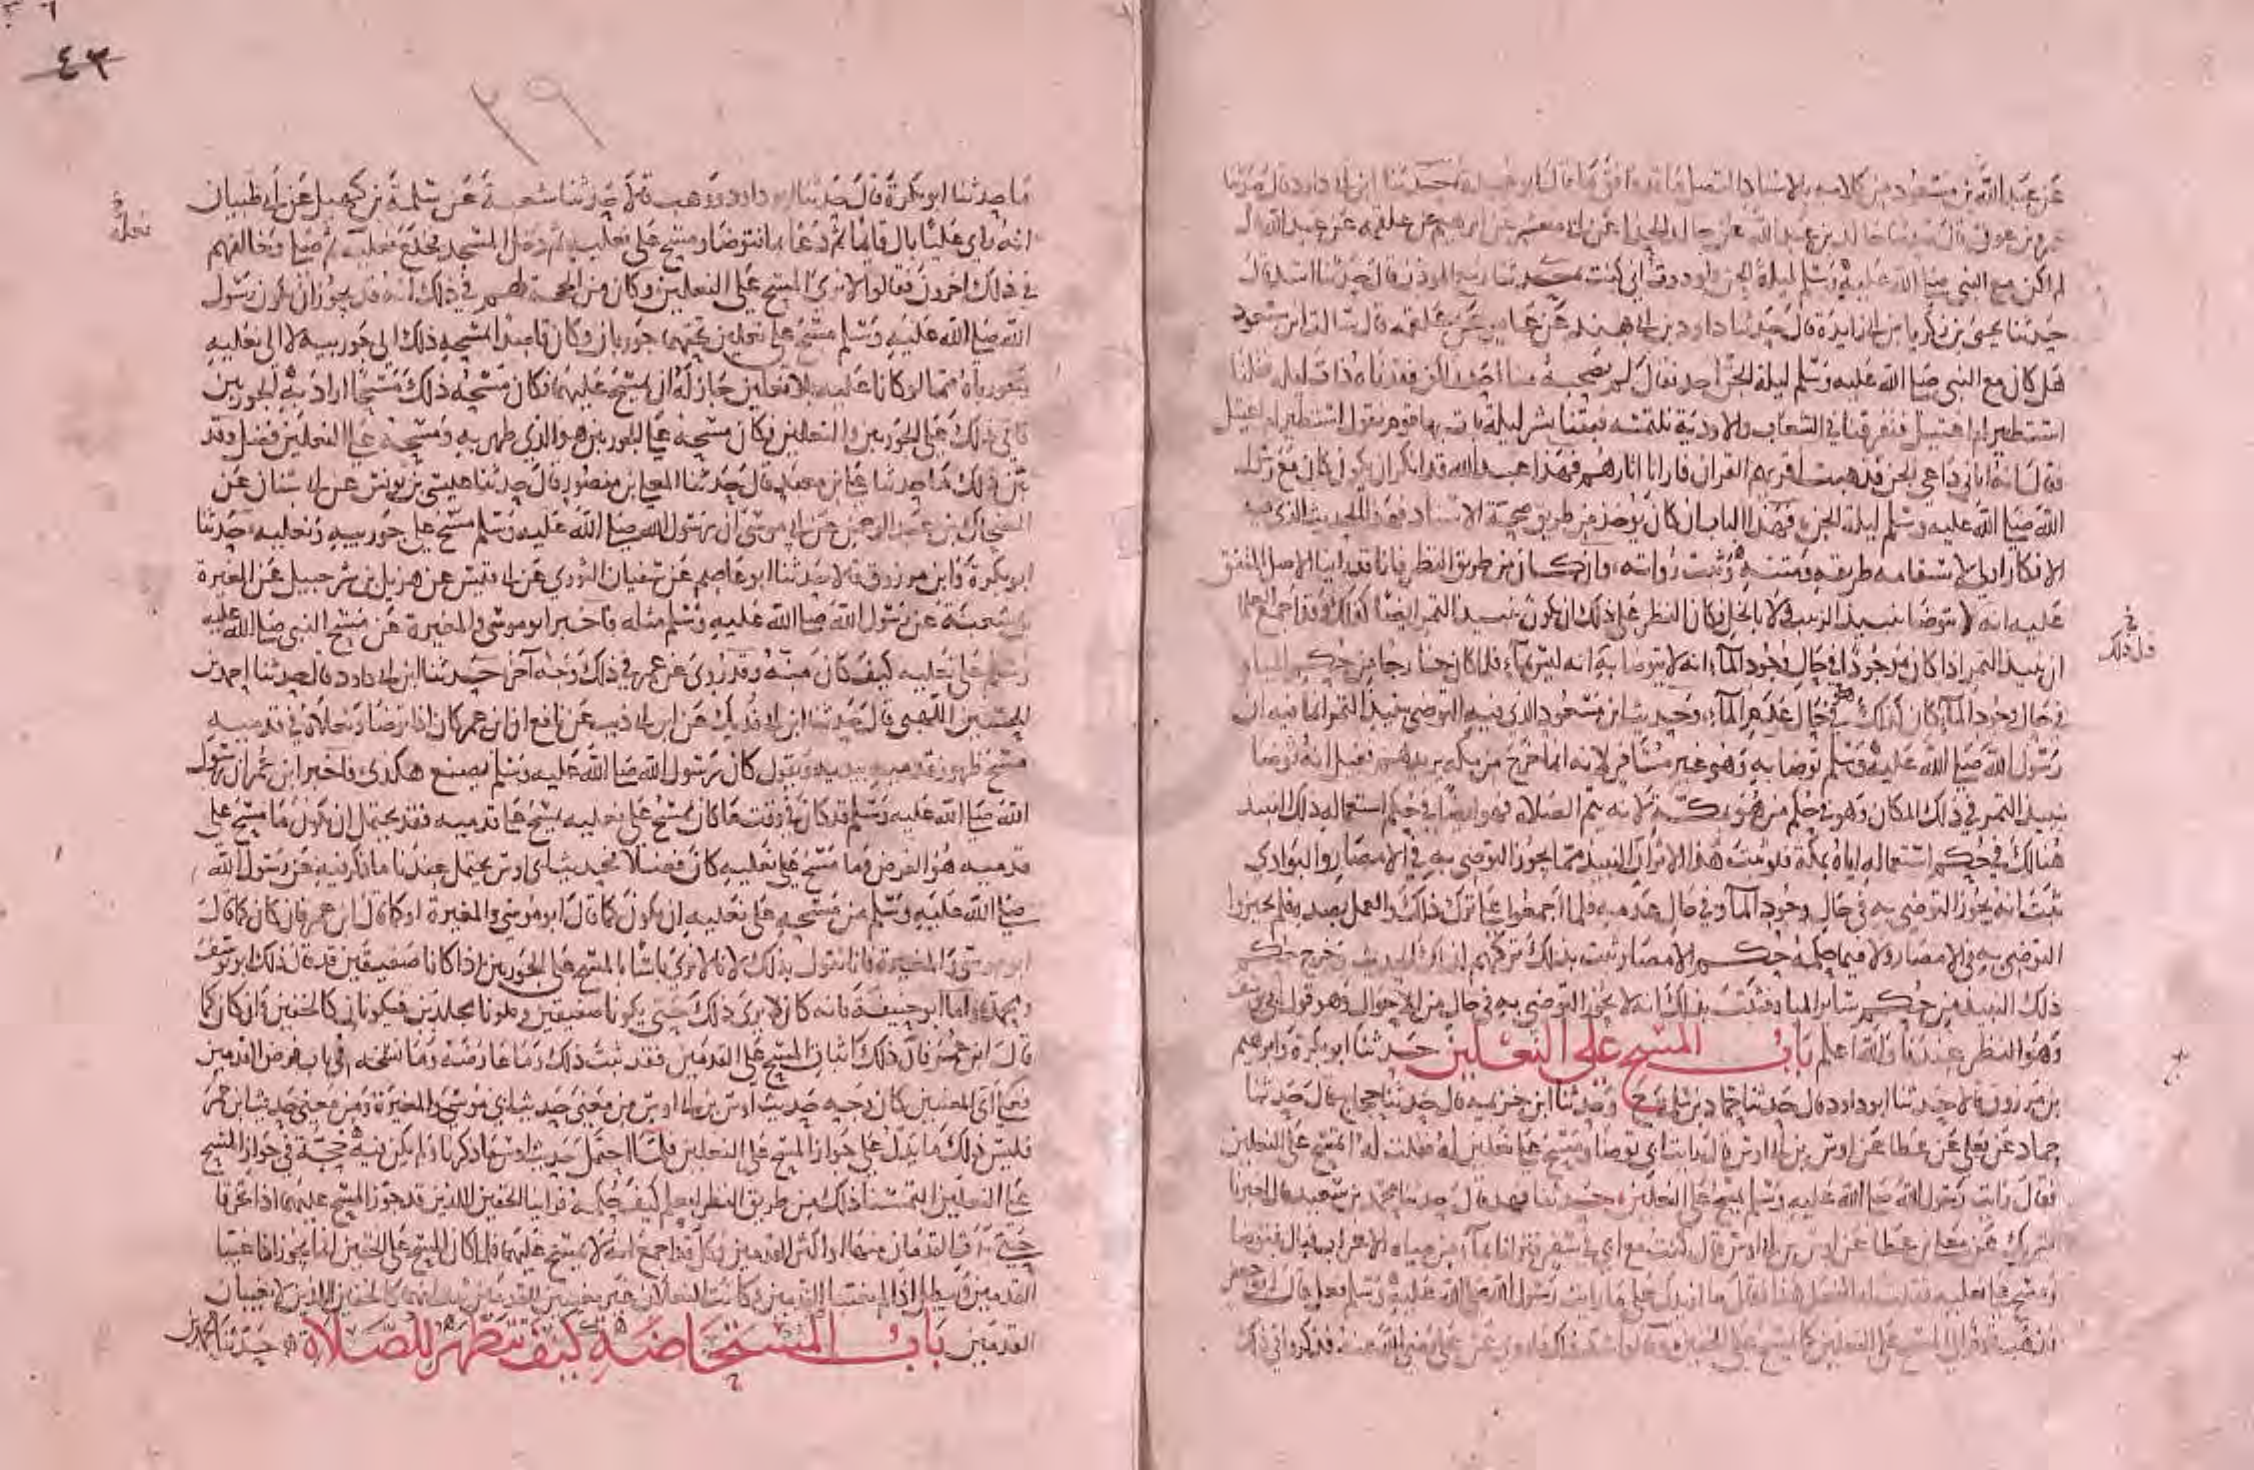 عن عبد الله بن مسعود من كلامه بالاسناد المتصل ما قد وافق ما قال ابو عبيدة حدثنا ابن ابي داود قال حدثنا
عمرو بن عون قال حدثنا خالد بن عبد الله عن خالد الحذا عن ابي معشر عن ابرهيم عن علقمه عن عبد الله قال
لم اكن مع النبي صلى الله عليه وسلم ليلة الجن ولوددت اني كنت معه حدثنا ربيع الموذن قال حدثنا اسد قال
حدثنا يحيى بن زكريا بن ابي زايدة قال حدثنا داود بن ابي هند عن عامر عن علقمه قال سالت ابن مسعود
هل كان مع النبي صلى الله عليه وسلم ليلة الجن احد فقال لم يصحبه منا احد ولكن فقدناه ذات ليله فقلنا
استطير او اغتيل فتفرقنا في الشعاب والاودية نلتمسه فبتنا بشر ليلة بات بها قوم نقول استطير او اغتيل
فقال انه اتاني داعي الجن فذهبت اقريهم القران فارانا اثارهم فهذا عبد الله قد انكر ان يكون كان مع رسول
الله صلى الله عليه وسلم ليلة الجن فهذا الباب ان كان يوخذ من طريق صحة الاسناد فهذا الحديث الذي فيه
الانكار اولى لاستقامه طريقه ومتنه وثبت رواته وان كان من طريق النظر فانا قد راينا الاصل المتفق
عليه انه لا يتوضا بنبيذ الزبيب ولا بالخل فكان النظر على ذلك ان يكون نبيذ التمر ايضا كذلك وقد اجمع العلما
ان نبيذ التمر اذا كان موجودا في حال وجود الماء انه لا يتوضا به انه ليس بماء فلما كان خارجا من حكم المياه
في حال وجود الماء كان كذلك هو في حال عدم الماء وحديث ابن مسعود الذي فيه التوضي بنبيذ التمر انما فيه ان
رسول الله صلى الله عليه وسلم توضا به وهو غير مسافر لانه انما خرج من مكه يريدهم فقيل انه توضا
بنبيذ التمر في ذلك المكان وهو في حكم من هو بمكة لانه يتم الصلاة فهو ايضا في حكم استعماله ذلك النبيذ
هنالك في حكم استعماله اياه بمكة فلو ثبت هذا الاثر ان النبيذ مما يجوز التوضي به في الامصار والبوادي
ثبت انه يجوز التوضي به في حال وجود الماء وفي حال عدمه فلما اجمعوا على ترك ذلك والعمل بضده فلم يجيزوا
التوضي به في الامصار ولا فيما حكمه حكم الامصار ثبت بذلك تركهم لذلك الحديث وخرج حكم
ذلك النبيذ من حكم ساير المياه فثبت بذلك انه لا يجوز التوضي به في حال من الاحوال وهو قول ابي يوسف
وهو النظر عندنا والله اعلم باب المسح على النعلين حدثنا ابو بكرة وابرهيم
بن مرزوق قالا حدثنا ابو داود قال حدثنا حماد بن سلمة ح وحدثنا ابن خزيمه قال حدثنا حجاج قال حدثنا
حماد عن يعلى عن عطا عن اوس بن ابي اوس قال رايت ابي توضا ومسح على نعلين له فقلت له اتمسح على النعلين
فقال رايت رسول الله صلى الله عليه وسلم يمسح على النعلين حدثنا فهد قال حدثنا محمد بن سعيد قال اخبرنا
شريك عن يعلى بن عطا عن اوس بن ابي اوس قال كنت مع ابي في سفر فنزلنا بماء من مياه الاعراب فبال فتوضا
ومسح على نعليه فقلت له اتفعل هذا فقال ما ازيدك على ما رايت رسول الله صلى الله عليه وسلم فعل قال ابو جعفر
فذهب قوم الى المسح على النعلين كما يمسح على الخفين وقالوا قد شد ذلك ما روي عن علي رضي الله عنه فذكروا في ذلك
في
قبل ذلك
٤٣
٢٩
ما حدثنا ابو بكرة قال حدثنا ابو داود ووهب قالا حدثنا شعبة عن سلمة بن كهيل عن ابي ظبيان
انه راى عليا بال قايما ثم دعا بماء فتوضا ومسح على نعليه ثم دخل المسجد فخلع نعليه ثم صلى وخالفهم
في ذلك اخرون فقالوا لا نرى المسح على النعلين وكان من الحجة لهم في ذلك انه قد يجوز ان يكون رسول
الله صلى الله عليه وسلم مسح على نعلين تحتهما جوربان وكان قاصدا بمسحه ذلك الى جوربيه لا الى نعليه
وجورباه مما لو كانا عليه بلا نعلين جاز له ان يمسح عليهما فكان مسحه ذلك مسحا اراد به الجوربين
فاتى ذلك على الجوربين والنعلين فكان مسحه على الجوربين هو الذي طهر به ومسحه على النعلين فضل وقد
بين ذلك ما حدثنا علي بن معبد قال حدثنا المعلى بن منصور قال حدثنا عيسى بن يونس عن ابي سنان عن
الضحاك بن عبد الرحمن عن ابي موسى ان رسول الله صلى الله عليه وسلم مسح على جوربيه ونعليه حدثنا
ابو بكرة وابن مرزوق قالا حدثنا ابو عاصم عن سفيان الثوري عن ابي قيس عن هزيل بن شرحبيل عن المغيرة
بن شعبة عن رسول الله صلى الله عليه وسلم مثله فاخبر ابو موسى والمغيرة عن مسح النبي صلى الله عليه
وسلم على نعليه كيف كان منه وقد روي عن ابن عمر في ذلك وجه آخر حدثنا ابن ابي داود قال حدثنا احمد بن
الحسين اللهبي قال حدثنا ابن ابي فديك عن ابن ابي ذيب عن نافع ان ابن عمر كان اذا توضا ونعلاه في قدميه
مسح ظهور قدميه بيديه ويقول كان رسول الله صلى الله عليه وسلم يصنع هكذى فاخبر ابن عمر ان رسول
الله صلى الله عليه وسلم قد كان في وقت ما كان يمسح على نعليه يمسح على قدميه فقد يحتمل ان يكون ما مسح على
قدميه هو الفرض وما مسح على نعليه كان فضلا فحديث ابي اوس يحتمل عندنا ما ذكر فيه عن رسول الله
صلى الله عليه وسلم من مسحه على نعليه ان يكون كما قال ابو موسى والمغيرة او كما قال ابن عمر فان كان كما قال
ابو موسى والمغيرة فانا نقول بذلك لانا لا نرى باسا بالمسح على الجوربين اذا كانا صفيقين قد قال ذلك ابو يوسف
ومحمد واما ابو حنيفة فانه كان لا يرى ذلك حتى يكونا صفيقين ويكونا مجلدين فيكونان كالخفين وان كان كما
قال ابن عمر فان ذلك اثبات المسح على القدمين فقد ثبت ذلك وما عارضه وما نسخه في باب فرض القدمين
فعلى اي المعنيين كان وجه حديث اوس بن ابي اوس من معنى حديث ابي موسى والمغيرة ومن معنى حديث ابن عمر
فليس ذلك ما يدل على جواز المسح على النعلين فلما احتمل حديث اوس ما ذكرنا ولم يكن فيه حجة في جواز المسح
على النعلين التمسنا ذلك من طريق النظر لنعلم كيف حكمه فراينا الخفين اللذين قد جوز المسح عليهما اذا تخرقا
حتى بدت القدمان منهما او اكثر القدمين فكل قد اجمع انه لا يمسح عليهما فلما كان المسح على الخفين انما يجوز اذا غيبا
القدمين ويبطل اذا لم يغيبا القدمين وكانت النعلان غير مغيبين للقدمين ثبت انهما كالخفين اللذين لا يغيبان
القدمين باب المستحاضة كيف تتطهر للصلاة حدثنا محمد بن
نعليه